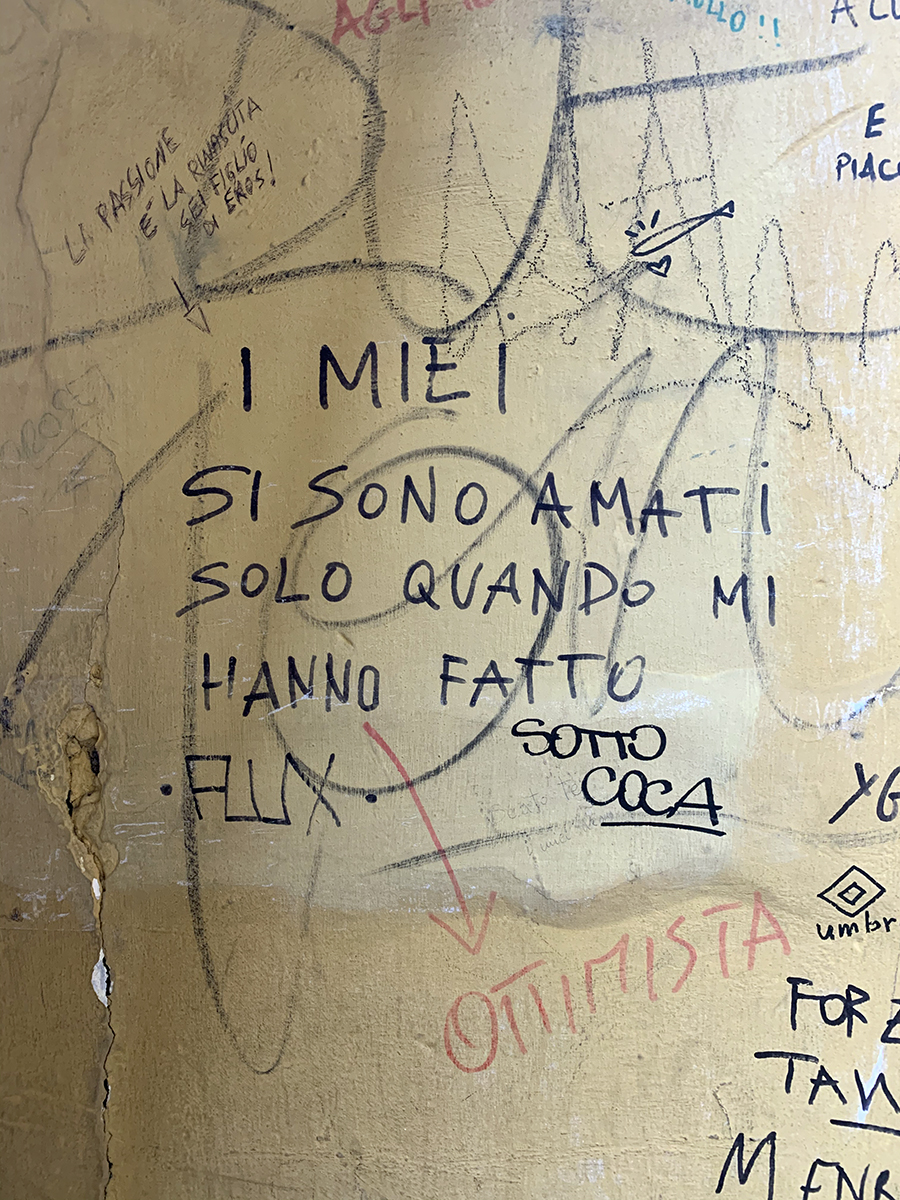 AGLI
LA PASSIONE
È LA RINASCITA
SEI FIGLIO
DI EROS!
E
I MIEI
SI SONO AMATI
SOLO QUANDO MI
HANNO FATTO
SOTTO
COCA
OTTIMISTA
umbr
FORZ
TAW
MENR